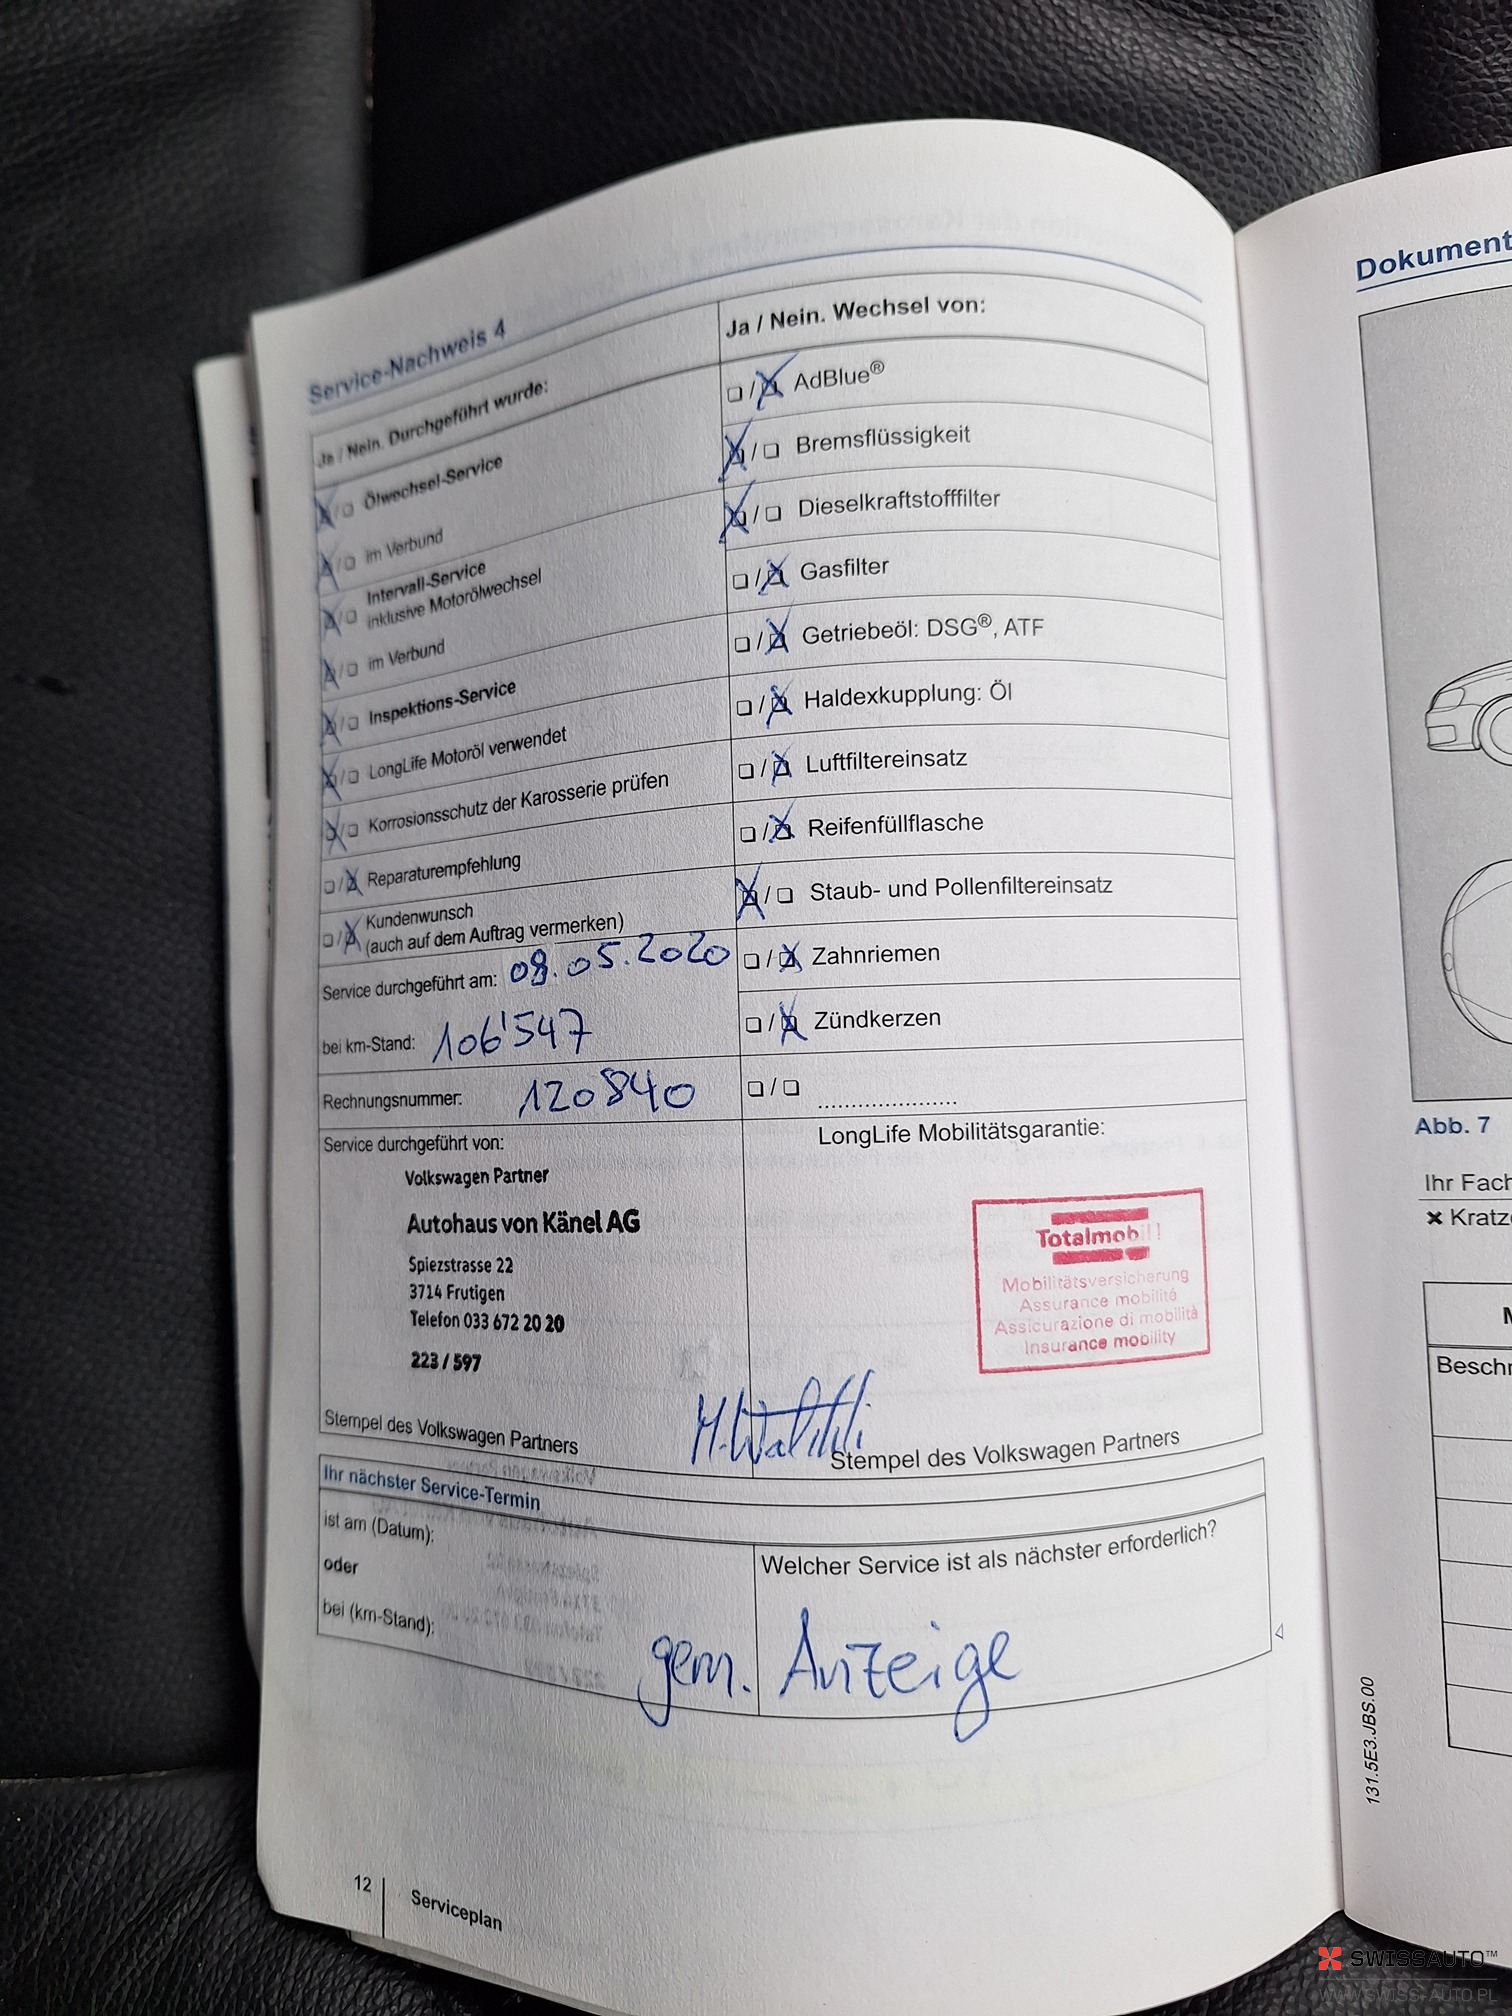 Service-Nachweis 4
Ja / Nein. Durchgeführt wurde:
Ölwechsel-Service
im Verbund
Intervall-Service
inklusive Motorölwechsel
im Verbund
Inspektions-Service
LongLife Motoröl verwendet
Korrosionsschutz der Karosserie prüfen
Reparaturempfehlung
Kundenwunsch
(auch auf dem Auftrag vermerken)
Service durchgeführt am: 08.05.2020
bei km-Stand: 106'547
Rechnungsnummer: 120840
Service durchgeführt von:
Volkswagen Partner
Autohaus von Känel AG
Spiezstrasse 22
3714 Frutigen
Telefon 033 672 20 20
223 / 597
Stempel des Volkswagen Partners
Ja / Nein. Wechsel von:
AdBlue®
Bremsflüssigkeit
Dieselkraftstofffilter
Gasfilter
Getriebeöl: DSG®, ATF
Haldexkupplung: Öl
Luftfiltereinsatz
Reifenfüllflasche
Staub- und Pollenfiltereinsatz
Zahnriemen
Zündkerzen
LongLife Mobilitätsgarantie:
Totalmobil!
Mobilitätsversicherung
Assurance mobilité
Assicurazione di mobilità
Insurance mobility
Stempel des Volkswagen Partners
Ihr nächster Service-Termin
ist am (Datum):
oder
bei (km-Stand):
Welcher Service ist als nächster erforderlich?
gem. Anzeige
12
Serviceplan
Dokument
Abb. 7
Ihr Fach
✖ Kratz
Besch
131.5E3.JBS.00
SWISSAUTO™
WWW.SWISS-AUTO.PL